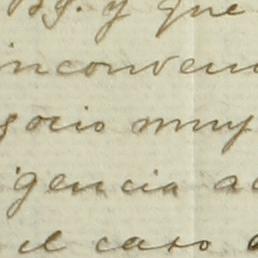 y que
inconven
gocio muy
igencia a
el caso